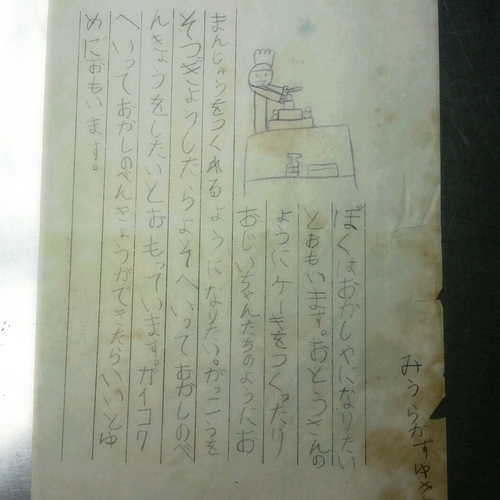 みうらかずゆき
ぼくはおかしやになりたい
とおもいます。おとうさんの
ようにケーキをつくったり
おじいちゃんたちのようにお
まんじゅうをつくれるようになりたい。がっこうを
そつぎょうしたらよそへいっておかしのべ
んきょうをしたいとおもっています。ガイコク
へいっておかしのべんきょうができたらいいとゆ
めにおもいます。